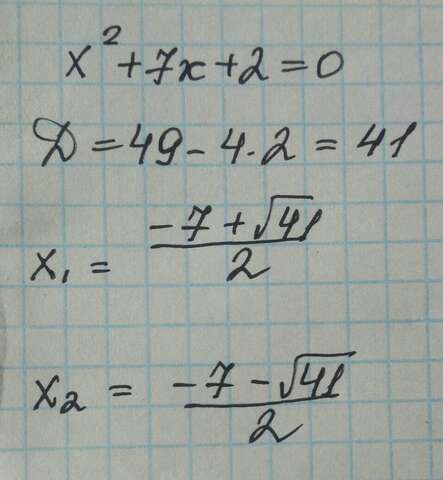 x² + 7x + 2 = 0
D = 49 - 4·2 = 41
x₁ = (-7 + √41)/2
x₂ = (-7 - √41)/2